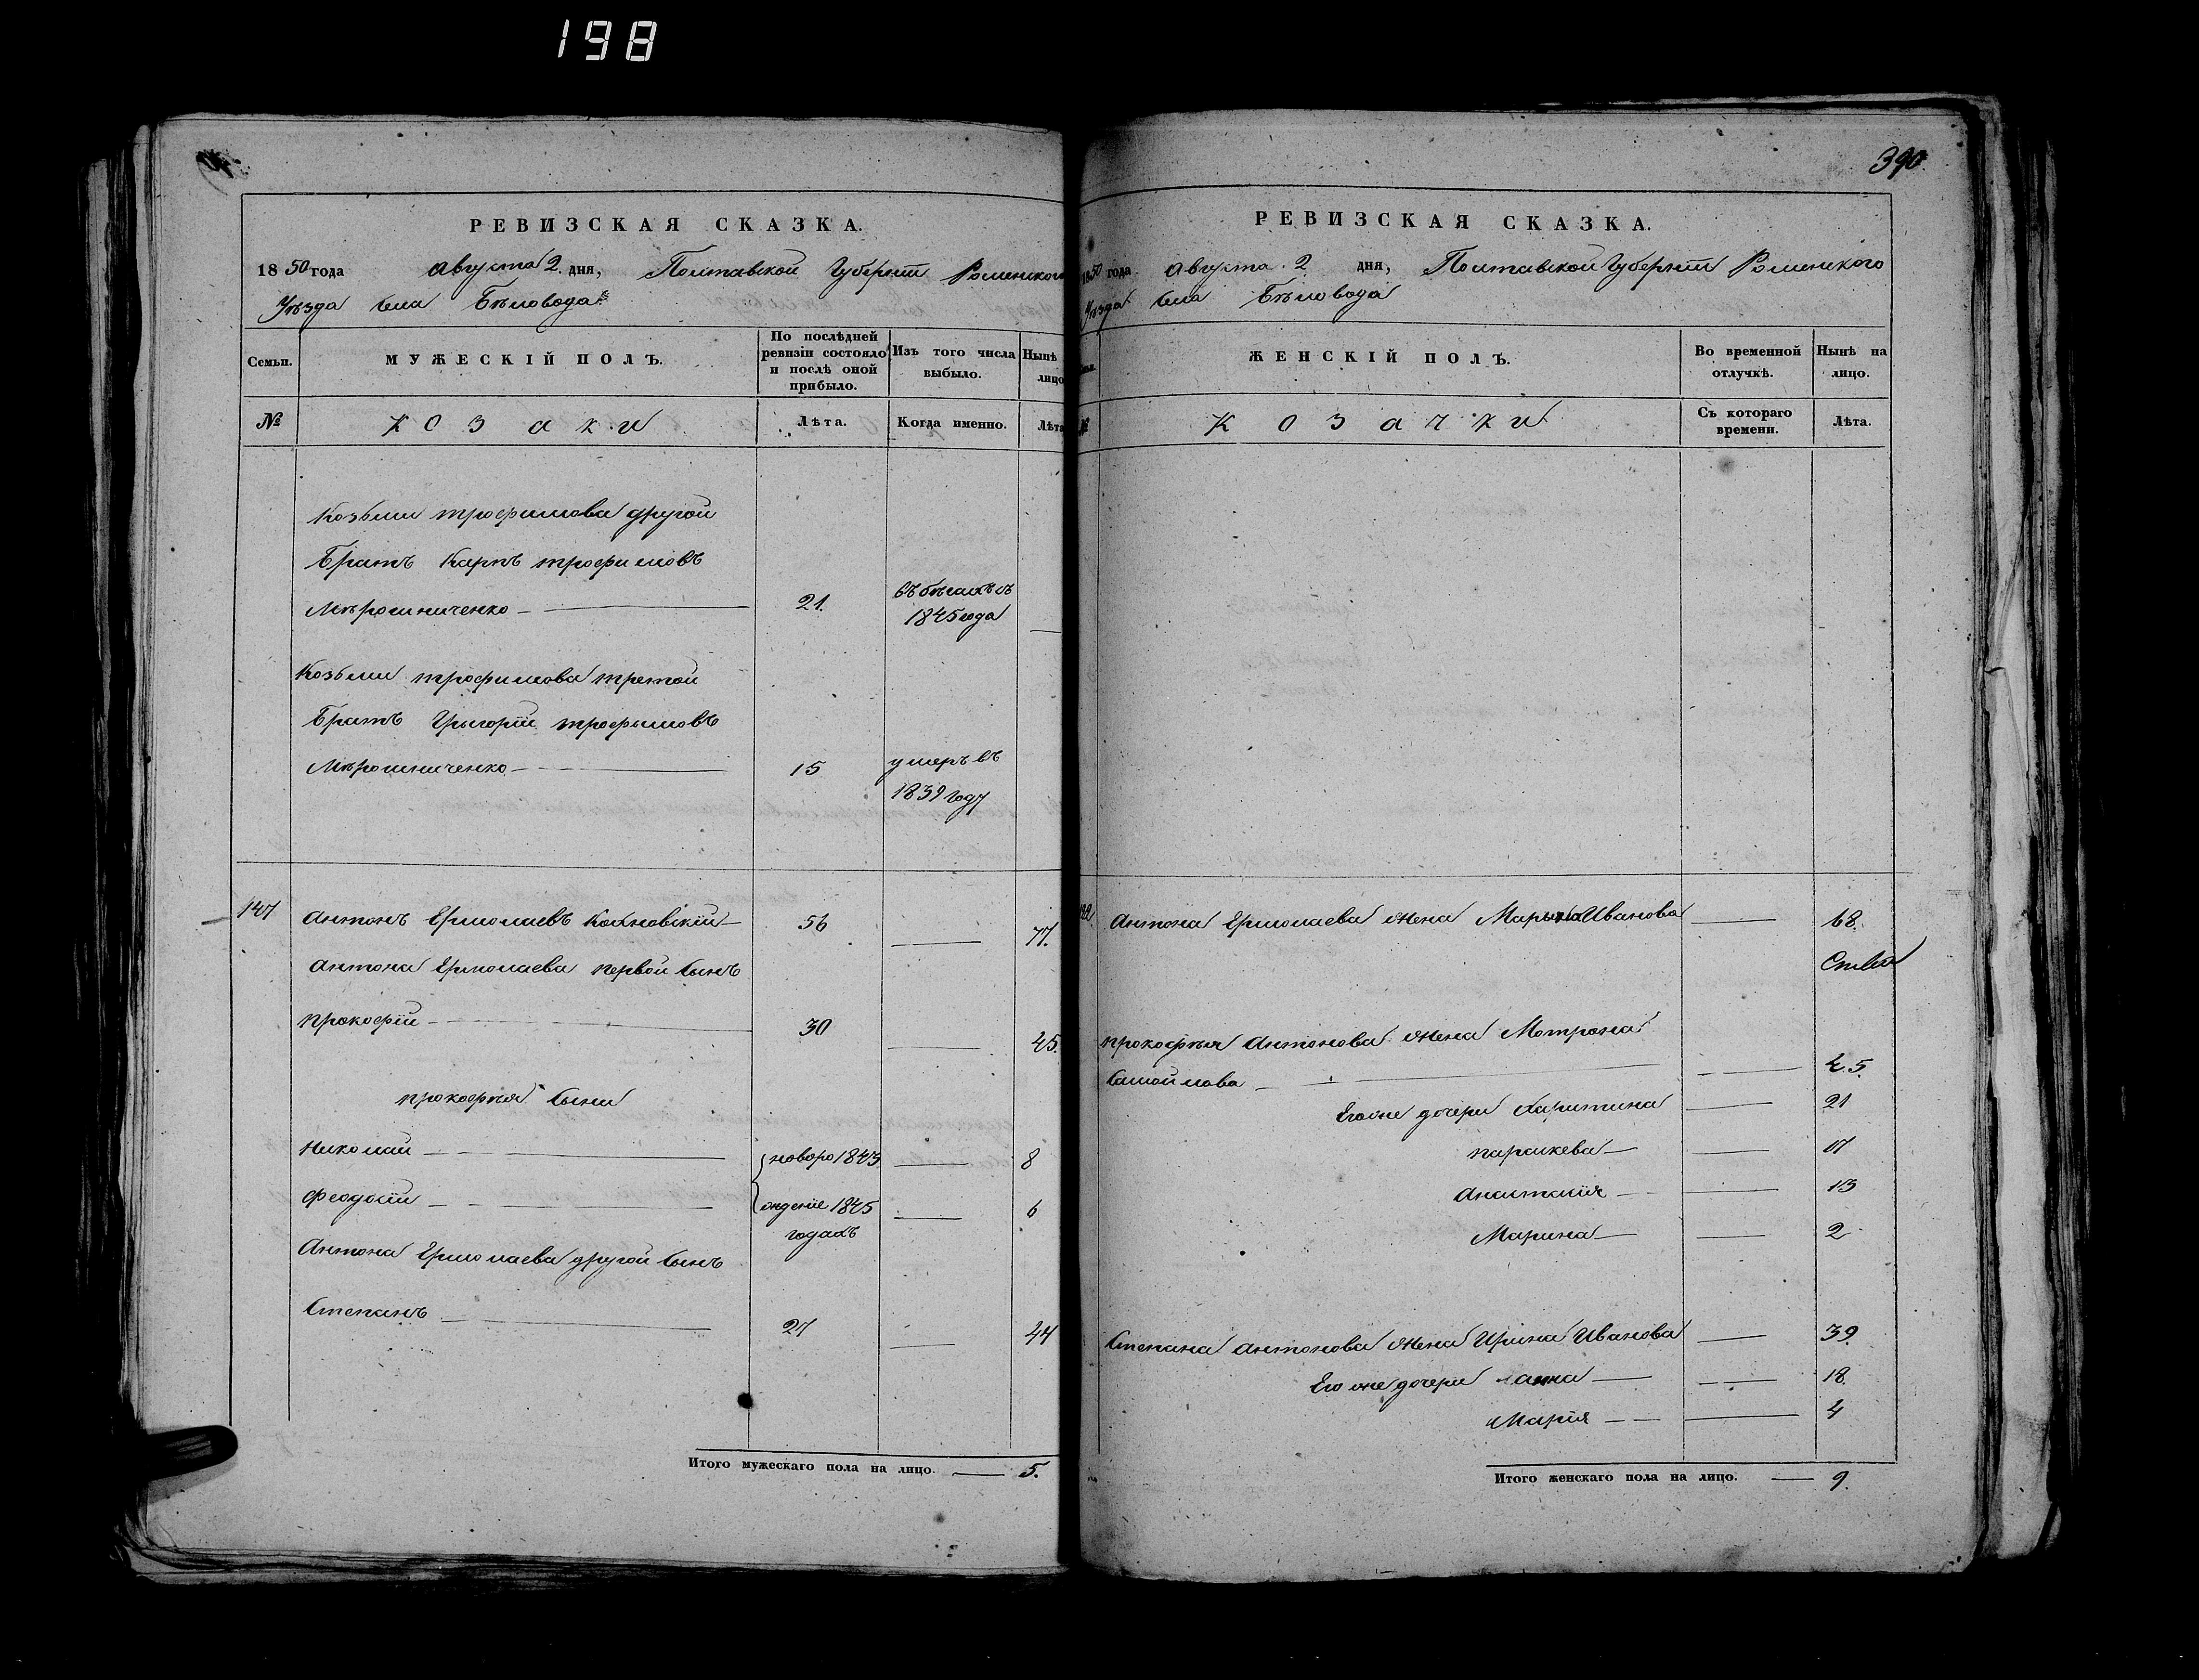 198
390.
РЕВИЗСКАЯ СКАЗКА.
1850 года Августа 2 дня, Полтавской Губерніи Роменского
Уѣзда села Бѣловода
Семьи.
МУЖЕСКІЙ ПОЛЪ.
По послѣдней ревизіи состояло и послѣ оной прибыло.
Изъ того числа выбыло.
Нынѣ лицо
№
Козаки
Лѣта.
Когда именно.
Лѣта
Козьми трофимова другой
Братъ Карпъ трофимовъ
Мѣрошниченко — 21. въ бѣгахъ съ
1845 года —
Козьми трофимова третой
Братъ Григорій трофымовъ
Мѣрошниченко — 15 умеръ въ
1839 году
147 Антонъ Ермолаевъ — 56 — 77.
Антона Ермолаева первой сынъ
Прокофій — 30 — 45.
Прокофія сыни
Николай — новоро 1843 — 8
Феодосій — жденіе 1845 — 6
годахъ
Антона Ермолаева другой сынъ
Степанъ — 27 — 44
Итого мужескаго пола на лицо. — 5.
РЕВИЗСКАЯ СКАЗКА.
1850 года Августа 2 дня, Полтавской Губерніи Роменского
Уѣзда села Бѣловода
ЖЕНСКІЙ ПОЛЪ.
Во временной отлучкѣ.
Нынѣ на лицо.
№
Козачки
Съ котораго времени.
Лѣта.
Антона Ермолаева жена Иванова — 68.
Прокофія Антонова жена Мотрона
Самойлова — — 45.
Его же дочери Харитина — 21
Параскева — — 17
Анастасія — — 13
Марина — — 2
Степана Антонова жена Ирина Иванова — 39.
Его же дочери Анна — — 18.
Марія — — 4
Итого женскаго пола на лицо. — 9.